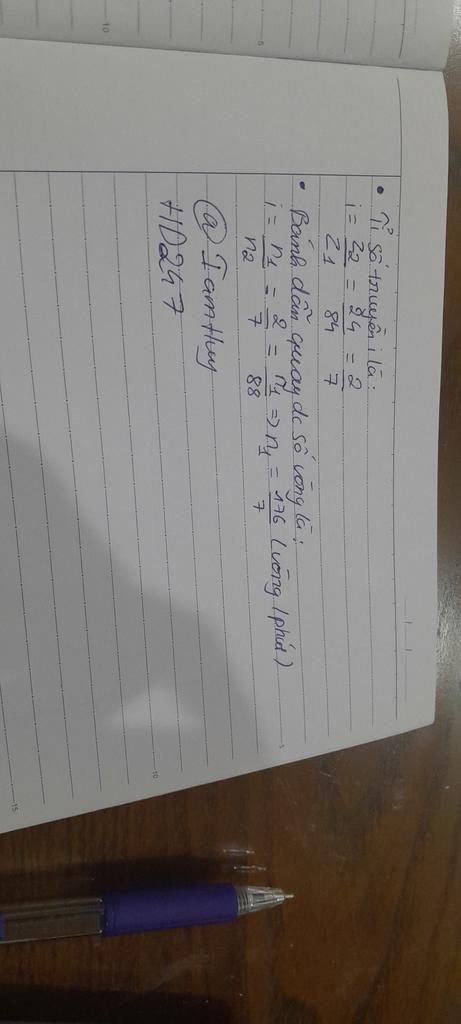 • Tỉ số truyền i là:
i = Z2/Z1 = 24/84 = 2/7
• Bánh dẫn quay dc số vòng là:
i = n1/n2 = 2/7 = n1/88 => n1 = 176/7 (vòng/phút)
@ Iamthuy
HD247
5
10
5
10
15